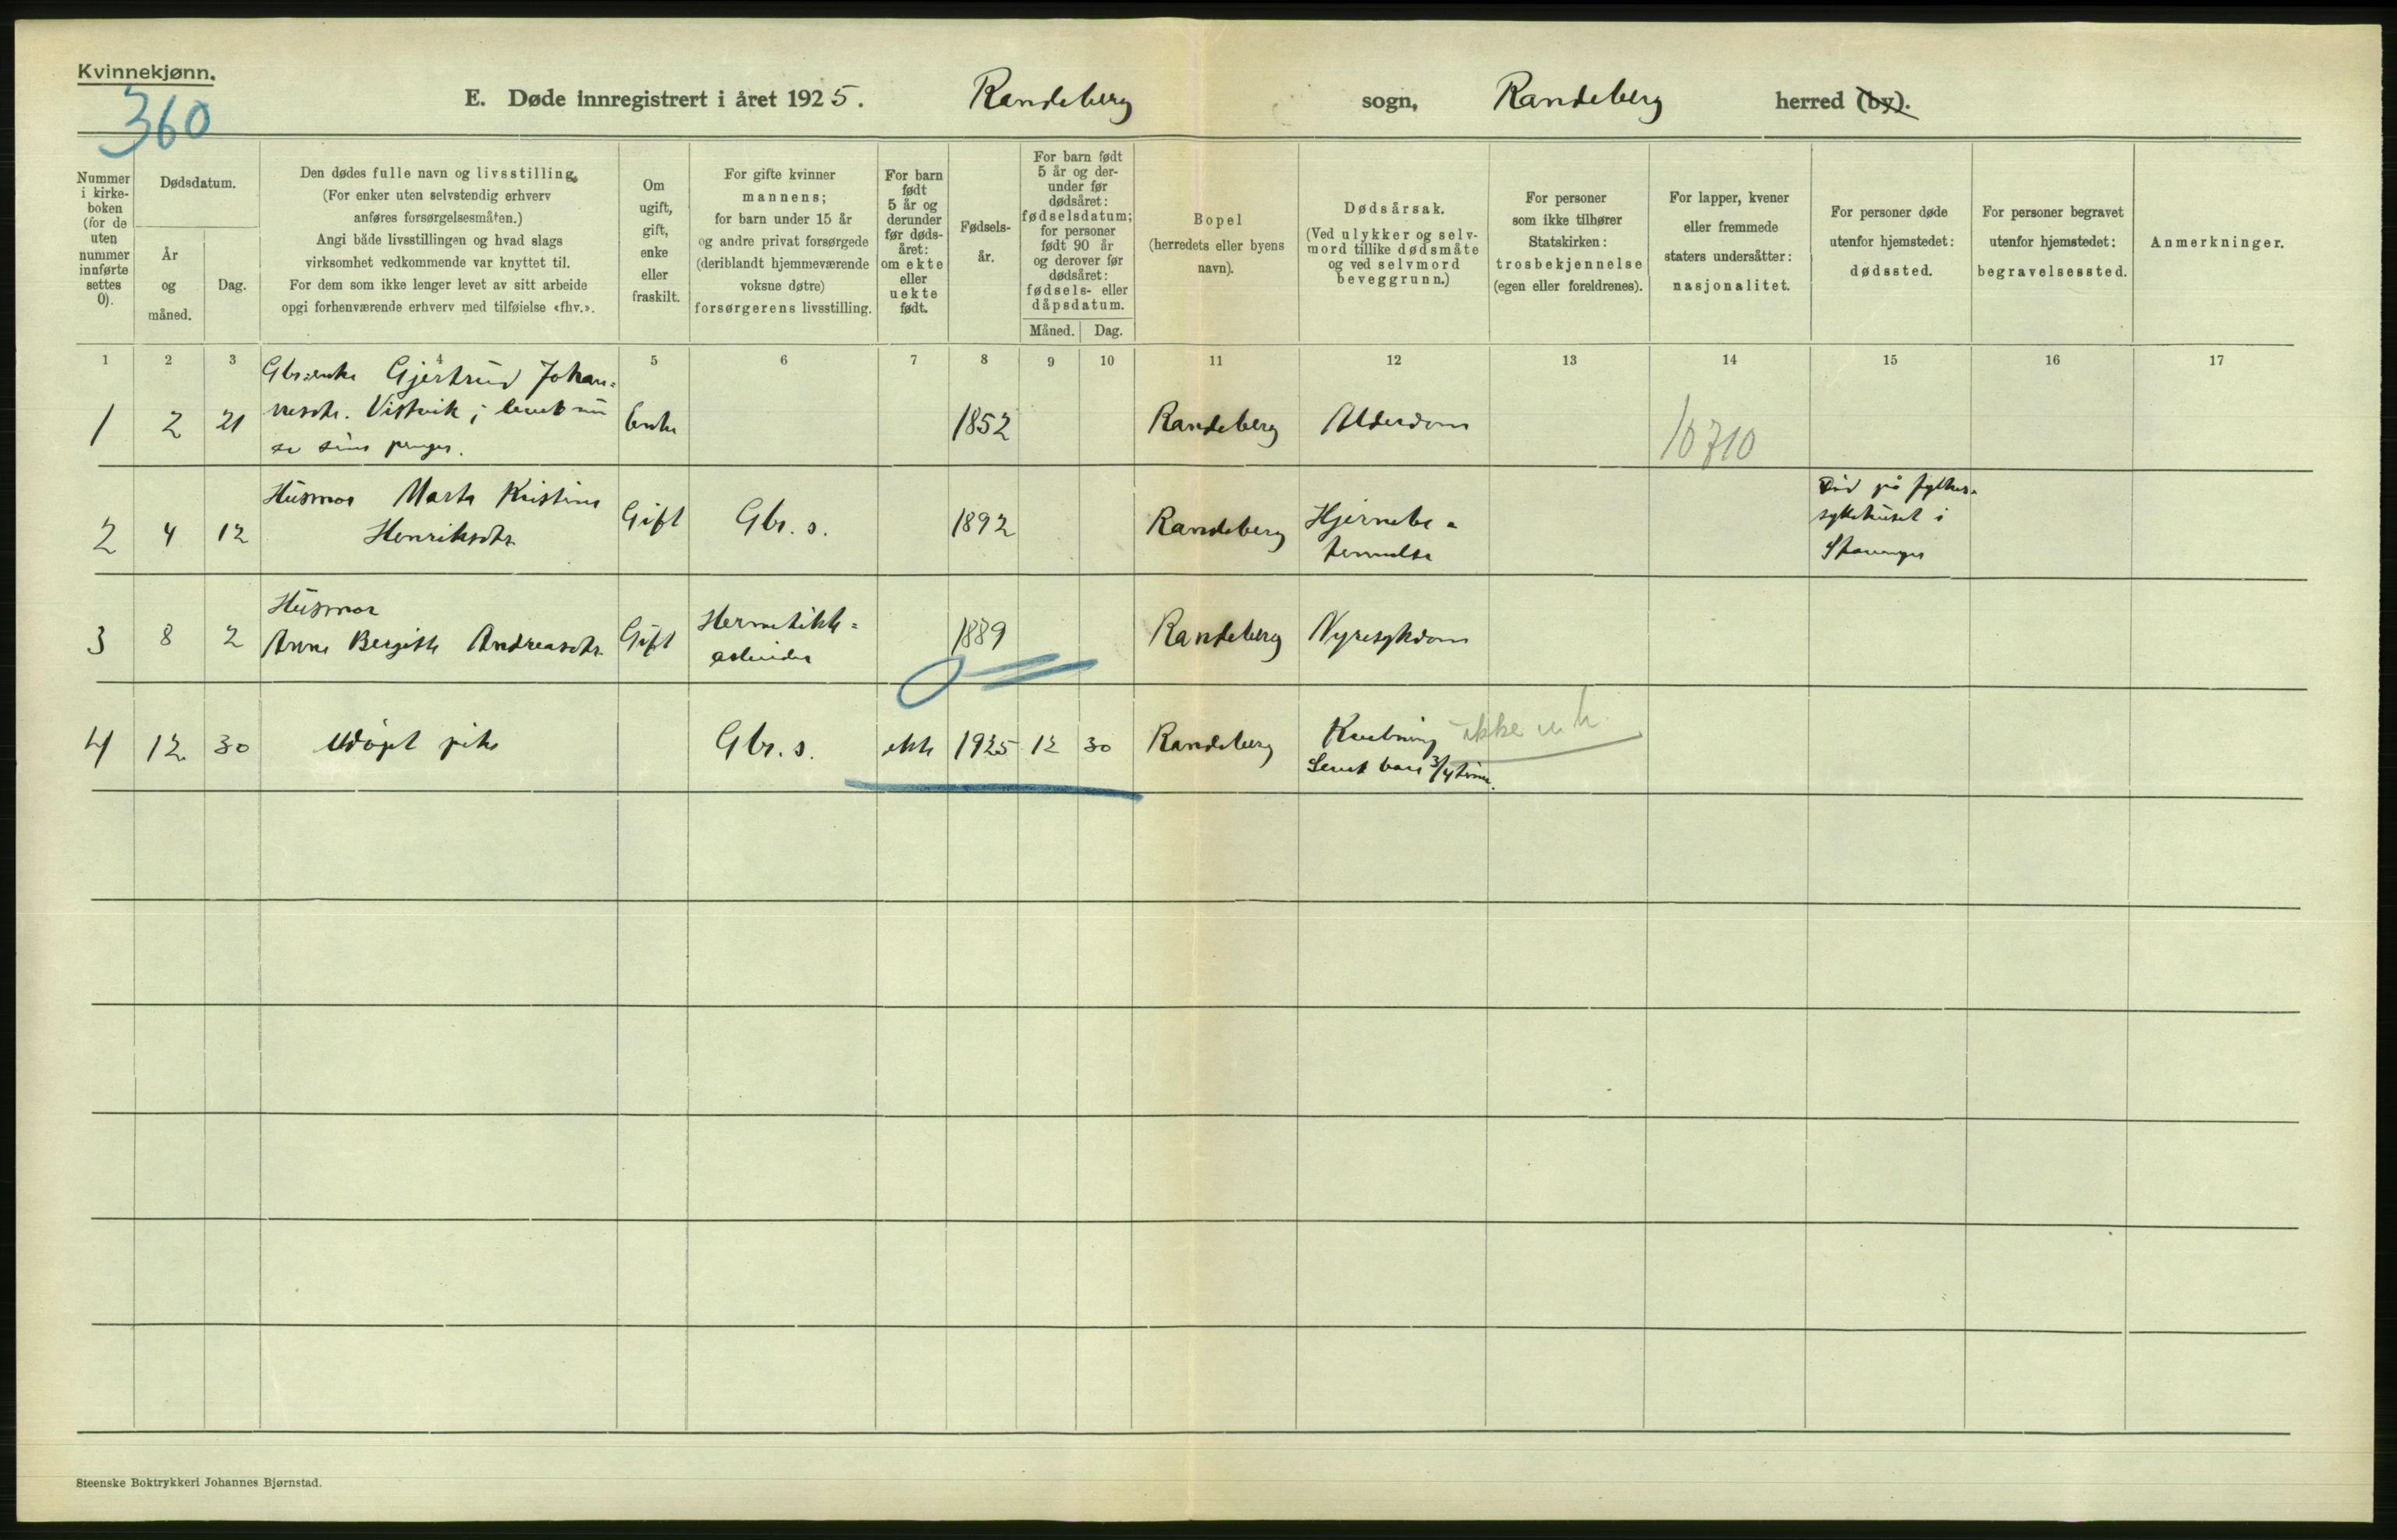 Kvinnekjønn.
360
E. Døde innregistrert i året 1925. Randeberg sogn, Randeberg herred (by).
Nummer
i kirke-
boken
(for de
uten
nummer
innførte
settes
0).
Dødsdatum.
År
og
måned.
Dag.
Den dødes fulle navn og livsstilling.
(For enker uten selvstendig erhverv
anføres forsørgelsesmåten.)
Angi både livsstillingen og hvad slags
virksomhet vedkommende var knyttet til.
For dem som ikke lenger levet av sitt arbeide
opgi forhenværende erhverv med tilføielse «fhv.».
Om
ugift,
gift,
enke
eller
fraskilt.
For gifte kvinner
mannens;
for barn under 15 år
og andre privat forsørgede
(deriblandt hjemmeværende
voksne døtre)
forsørgerens livsstilling.
For barn
født
5 år og
derunder
før døds-
året:
om ekte
eller
uekte
født.
Fødsels-
år.
For barn født
5 år og der-
under før
dødsåret:
fødselsdatum;
for personer
født 90 år
og derover før
dødsåret:
fødsels- eller
dåpsdatum.
Måned. Dag.
Bopel
(herredets eller byens
navn).
Dødsårsak.
(Ved ulykker og selv-
mord tillike dødsmåte
og ved selvmord
beveggrunn.)
For personer
som ikke tilhører
Statskirken:
trosbekjennelse
(egen eller foreldrenes).
For lapper, kvener
eller fremmede
staters undersåtter:
nasjonalitet.
For personer døde
utenfor hjemstedet:
dødssted.
For personer begravet
utenfor hjemstedet:
begravelsessted.
Anmerkninger.
1 2 3 4 5 6 7 8 9 10 11 12 13 14 15 16 17
Gbr.enke Gjertrud Johan=
nesdtr. Vistvik; levet
av sine penger.
1 2 21 Enke 1852 Randeberg Alderdom
10710
Husmor Marta Kristine
Henriksdtr.
2 4 12 Gift Gbr. s. 1892 Randeberg Hjernebe=
tennelse
Død på fylkes=
sykehuset i
Stavanger
Husmor
3 8 2 Anna Bergitte Andreasdtr. Gift Hermetikk=
arbeider
1889 Randeberg Nyresykdom
4 12 30 Udøpt pike Gbr. s. ekte 1925 12 30 Randeberg
Kvelning ikke
Levet bare 3/4 time.
Steenske Boktrykkeri Johannes Bjørnstad.